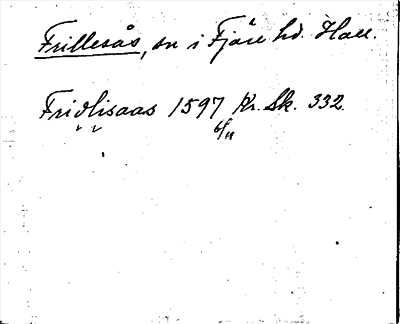 Frillesås, sn i Fjäre hd. Hall.
Fridlisaas 1597 6/11 Kr. Sk. 332.